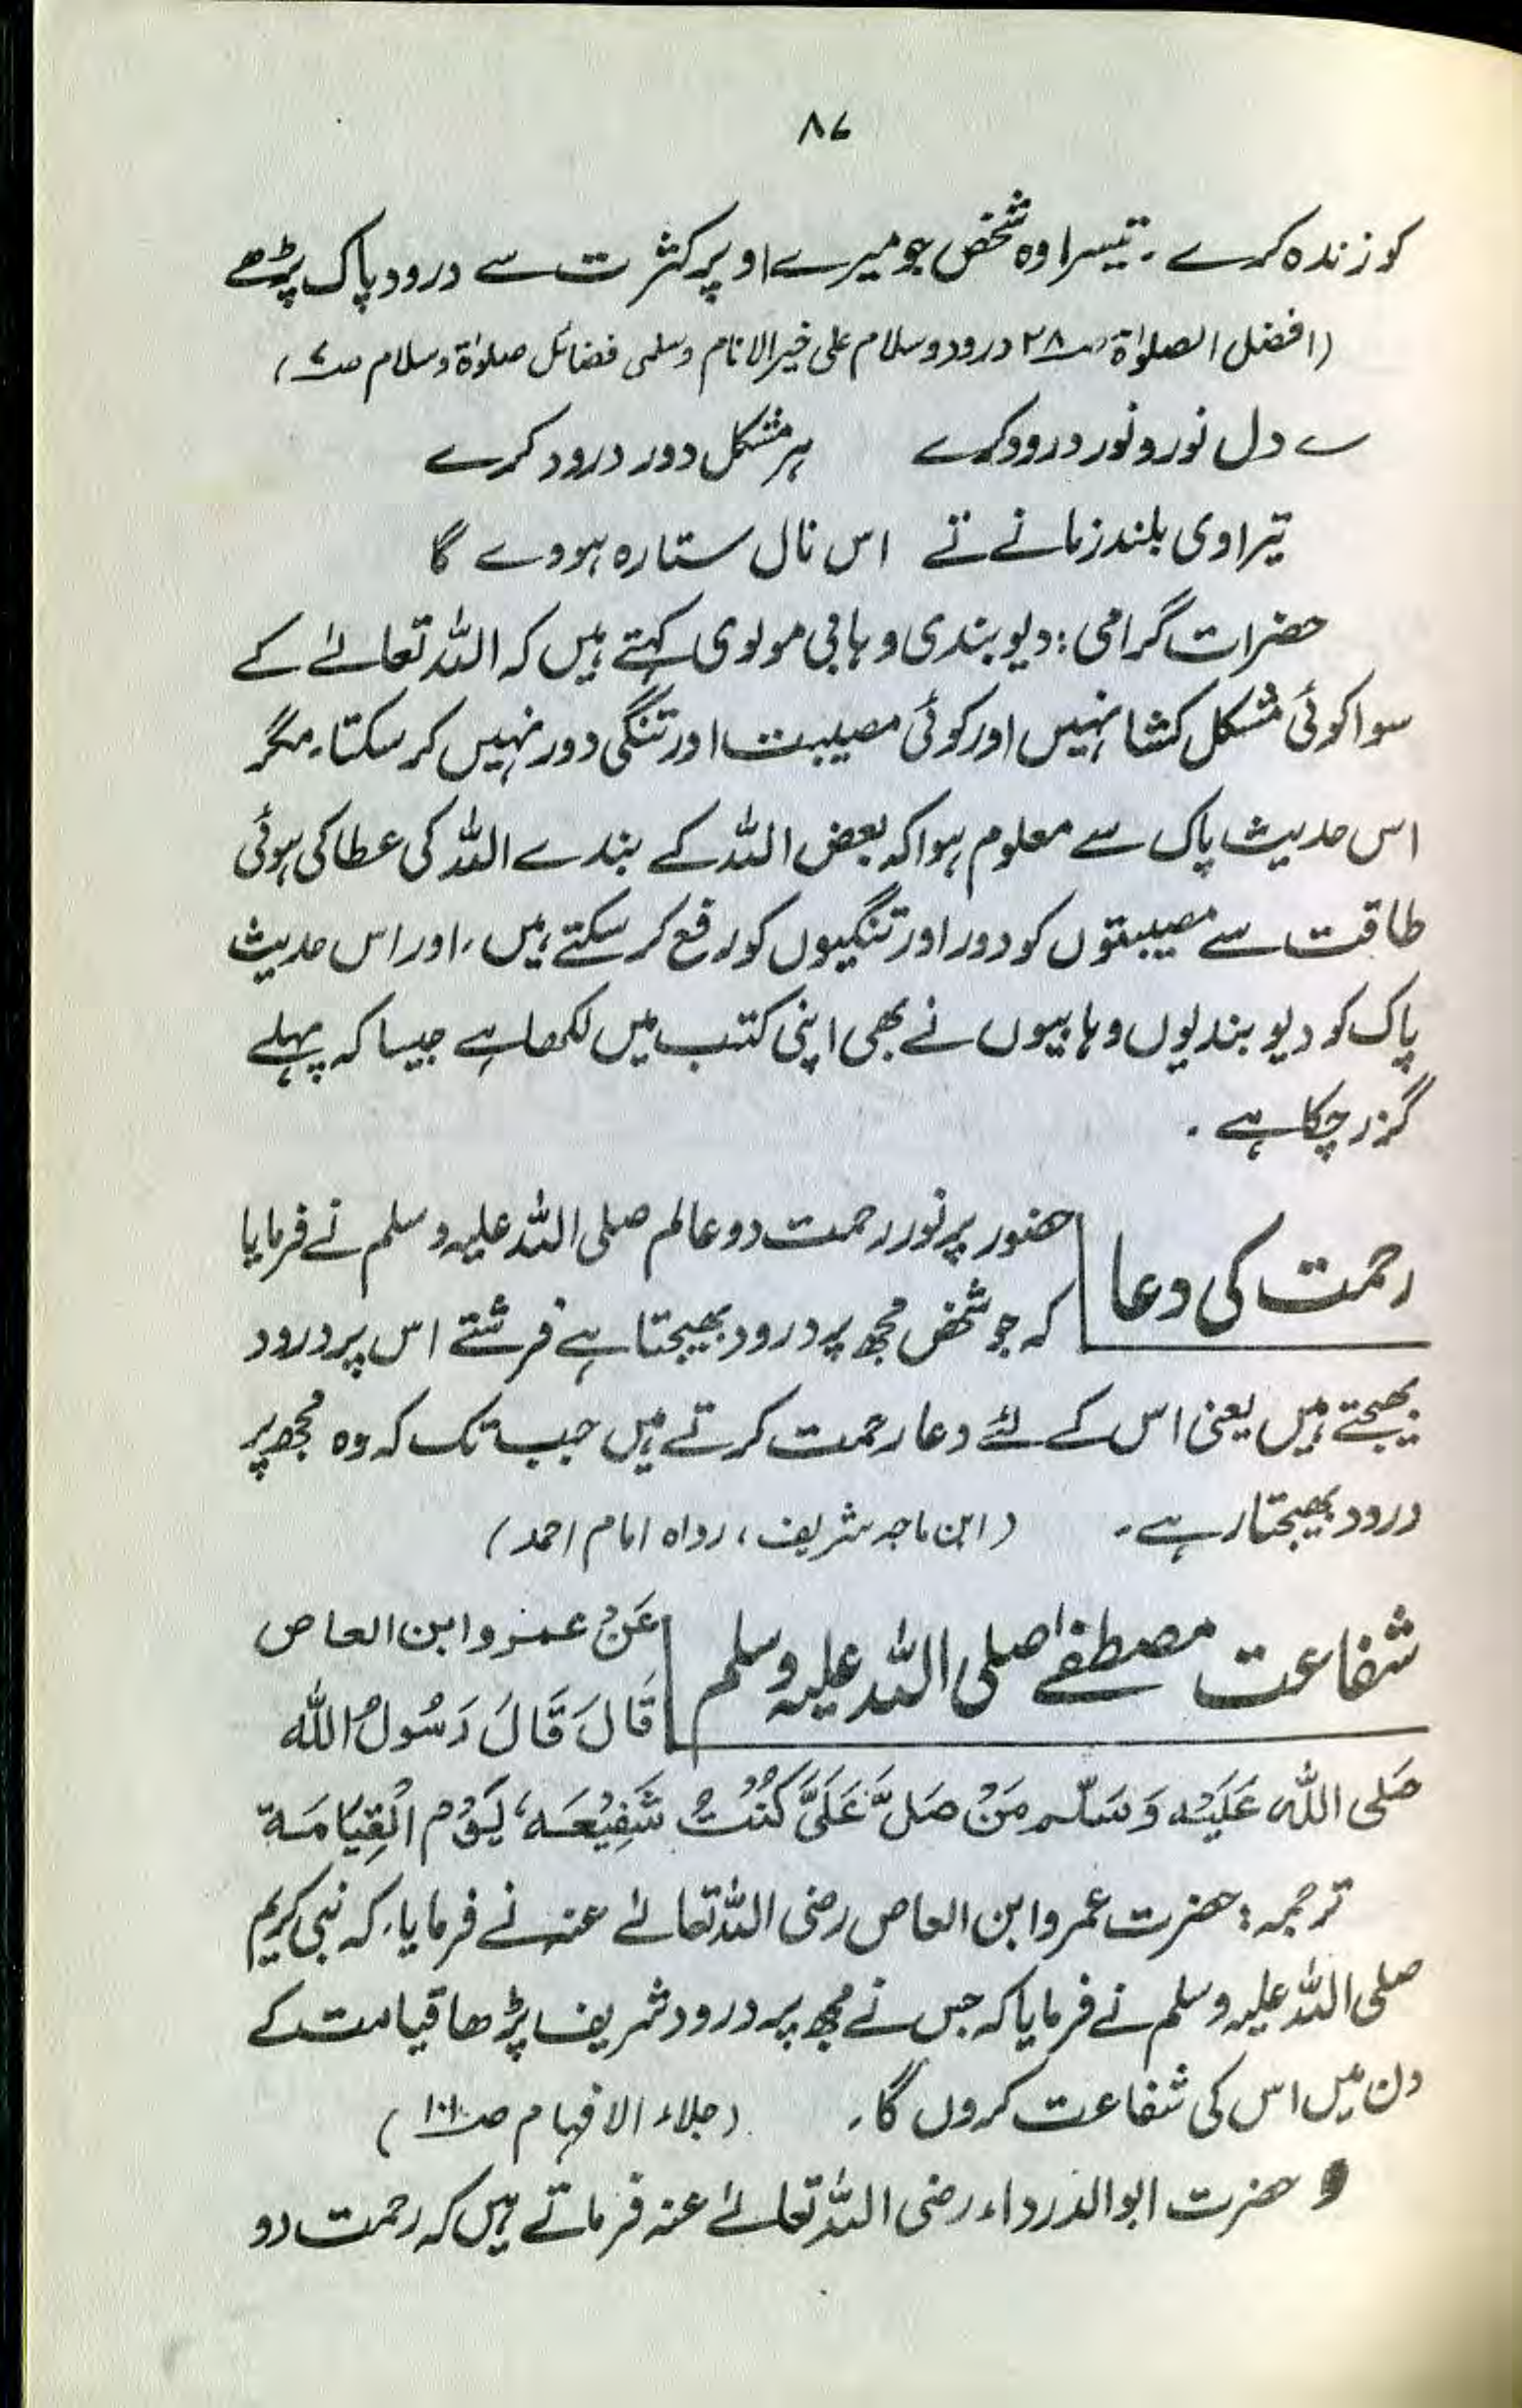 ۸۷
کو زندہ کرے ۔ تیسرا وہ شخص جو میرے اوپر کثرت سے درود پاک پڑھے
(افضل الصلوٰۃ صـ۲۸ درود و سلام علی خیر الانام وسلمی فضائل صلوٰۃ وسلام صـ۷)
ے دل نور و نور درود کرے ہر مشکل دور درود کرے
تیرا وی بلند زمانے تے اس نال ستارہ ہووے گا
حضرات گرامی : دیوبندی وہابی مولوی کہتے ہیں کہ اللہ تعالےٰ کے
سوا کوئی مشکل کشا نہیں اور کوئی مصیبت اور تنگی دور نہیں کر سکتا، مگر
اس حدیث پاک سے معلوم ہوا کہ بعض اللہ کے بندے اللہ کی عطا کی ہوئی
طاقت سے مصیبتوں کو دور اور تنگیوں کو رفع کر سکتے ہیں، اور اس حدیث
پاک کو دیوبندیوں وہابیوں نے بھی اپنی کتب میں لکھا ہے جیسا کہ پہلے
گزر چکا ہے ۔
رحمت کی دعا
حضور پر نور رحمت دو عالم صلی اللہ علیہ وسلم نے فرمایا
کہ جو شخص مجھ پر درود بھیجتا ہے فرشتے اس پر درود
بھیجتے ہیں یعنی اس کے لئے دعا رحمت کرتے ہیں جب تک کہ وہ مجھ پر
درود بھیجتا رہے ۔ (ابن ماجہ شریف، رواہ امام احمد)
شفاعت مصطفےٰ صلی اللہ علیہ وسلم
عَنْ عمرو ابن العاص
قَالَ قَالَ رَسُولُ اللہ
صَلی اللہ عَلَیْہ وَسَلّم مَنْ صَلَّ عَلَیَّ کُنْتُ شَفِیْعَہ، یَوْم الْقِیَامَۃ
ترجمہ : حضرت عمرو ابن العاص رضی اللہ تعالےٰ عنہ نے فرمایا، کہ نبی کریم
صلی اللہ علیہ وسلم نے فرمایا کہ جس نے مجھ پر درود شریف پڑھا قیامت کے
دن میں اس کی شفاعت کروں گا، (جلاء الافہام صـ۱۰۱)
حضرت ابو الدرداء رضی اللہ تعالےٰ عنہ فرماتے ہیں کہ رحمت دو